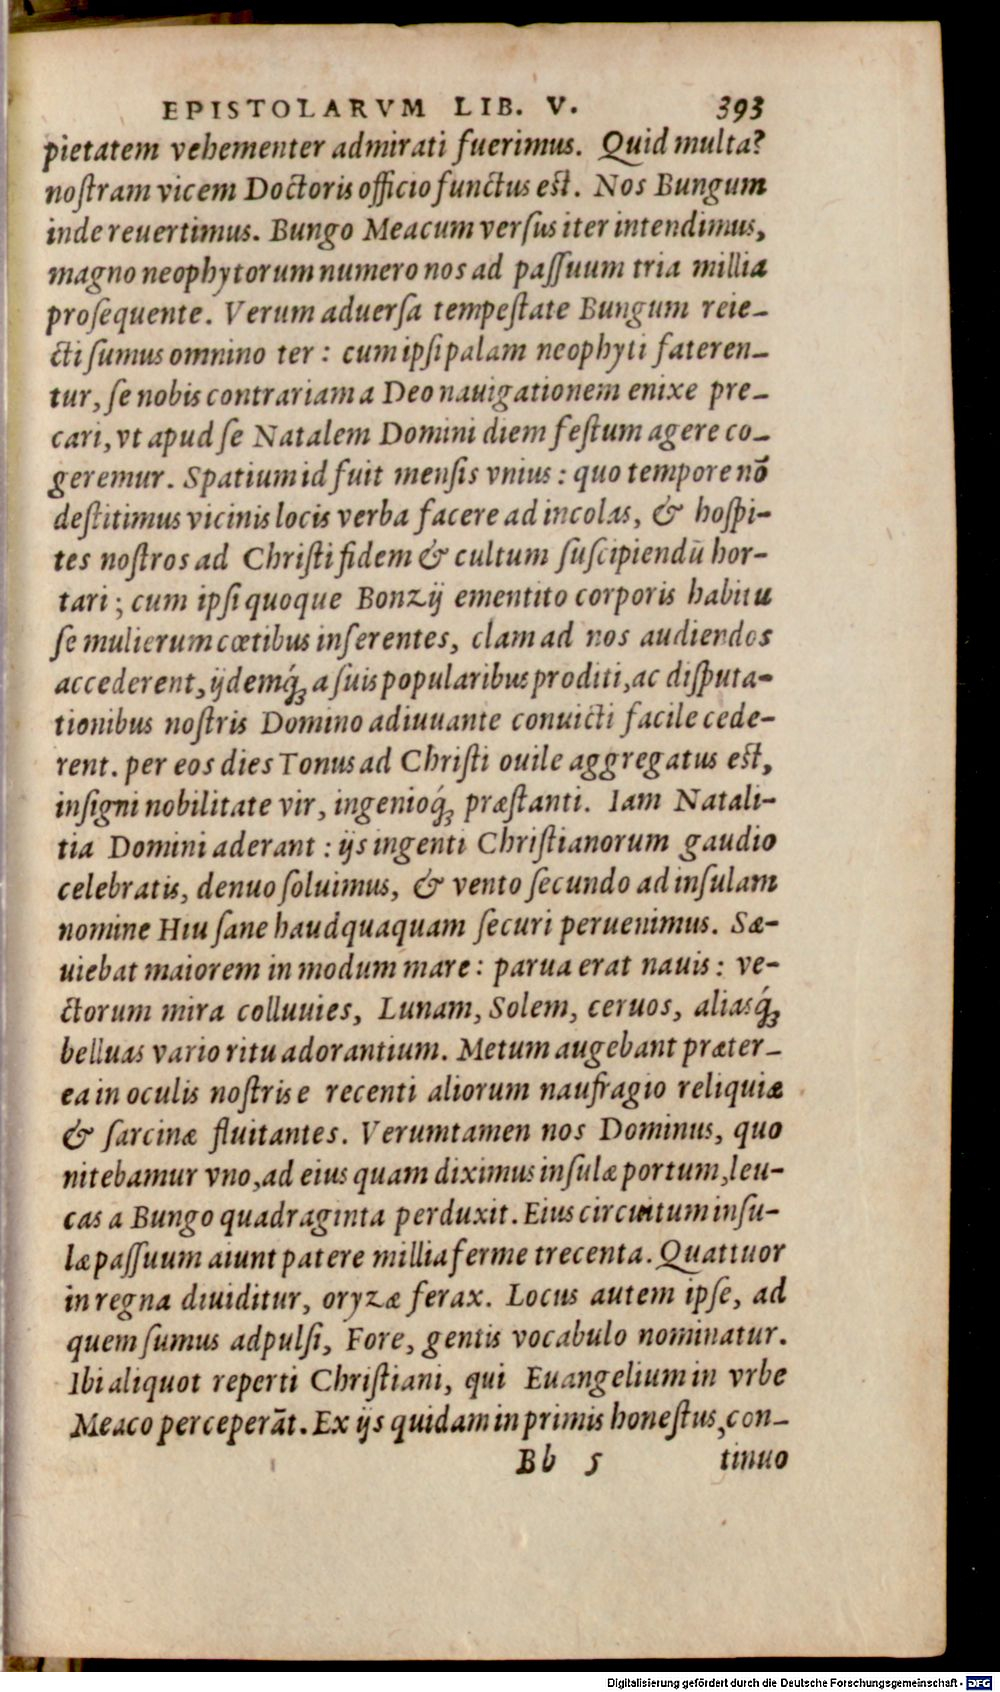 EPISTOLARVM LIB. V. 393
pietatem vehementer admirati fuerimus. Quid multa?
noſtram vicem Doctoris officio functus eſt. Nos Bungum
inde reuertimus. Bungo Meacum verſus iter intendimus,
magno neophytorum numero nos ad paſſuum tria millia
proſequente. Verum aduerſa tempeſtate Bungum reie-
cti ſumus omnino ter: cum ipſi palam neophyti fateren-
tur, ſe nobis contrariam a Deo nauigationem enixe pre-
cari, vt apud ſe Natalem Domini diem feſtum agere co-
geremur. Spatium id fuit menſis vnius: quo tempore nō
deſtitimus vicinis locis verba facere ad incolas, & hoſpi-
tes noſtros ad Chriſti fidem & cultum ſuſcipiendū hor-
tari; cum ipſi quoque Bonzij ementito corporis habitu
ſe mulierum cœtibus inſerentes, clam ad nos audiendos
accederent, ijdemq́ꝫ a ſuis popularibus proditi, ac diſputa-
tionibus noſtris Domino adiuuante conuicti facile cede-
rent. per eos dies Tonus ad Chriſti ouile aggregatus eſt,
inſigni nobilitate vir, ingenioq́ꝫ præſtanti. Iam Natali-
tia Domini aderant: ijs ingenti Chriſtianorum gaudio
celebratis, denuo ſoluimus, & vento ſecundo ad inſulam
nomine Hiu ſane haudquaquam ſecuri peruenimus. Sæ-
uiebat maiorem in modum mare: parua erat nauis: ve-
ctorum mira colluuies, Lunam, Solem, ceruos, aliasq́ꝫ
belluas vario ritu adorantium. Metum augebant præter-
ea in oculis noſtris e recenti aliorum naufragio reliquiæ
& ſarcinæ fluitantes. Verumtamen nos Dominus, quo
nitebamur vno, ad eius quam diximus inſulæ portum, leu-
cas a Bungo quadraginta perduxit. Eius circuitum inſu-
læ paſſuum aiunt patere millia ferme trecenta. Quattuor
in regna diuiditur, oryzæ ferax. Locus autem ipſe, ad
quem ſumus adpulſi, Fore, gentis vocabulo nominatur.
Ibi aliquot reperti Chriſtiani, qui Euangelium in vrbe
Meaco perceperāt. Ex ijs quidam in primis honeſtus, con-
Bb 5 tinuo
Digitalisierung gefördert durch die Deutsche Forschungsgemeinschaft - DFG